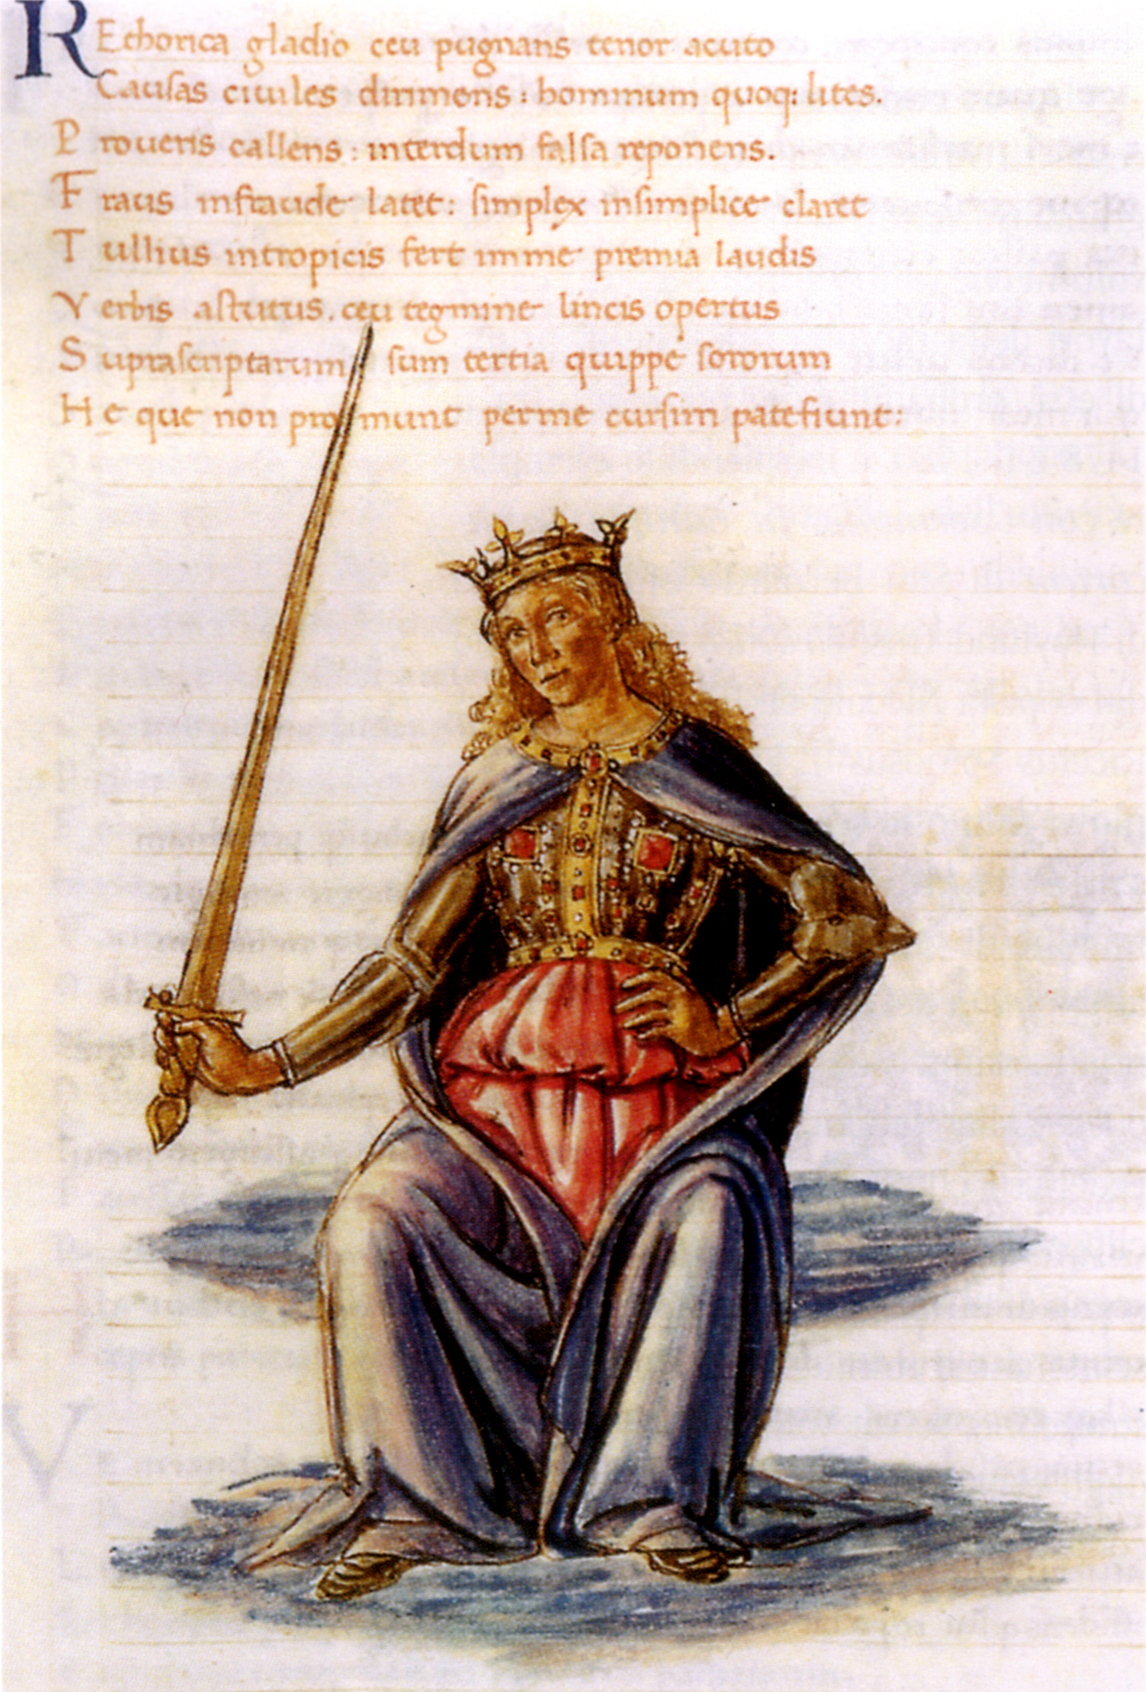 REthorica gladio ceu pugnans tenor acuto
Causas ciuiles dirimens : hominum quoq; lites.
Proueris callens : interdum falsa reponens.
Fraus infraude latet : simplex insimplice claret
Tullius intropicis fert imme premia laudis
Verbis astutus. ceu tegmine lincis opertus
Suprascriptarum sum tertia quippe sororum
He que non promunt perme cursim patefiunt: